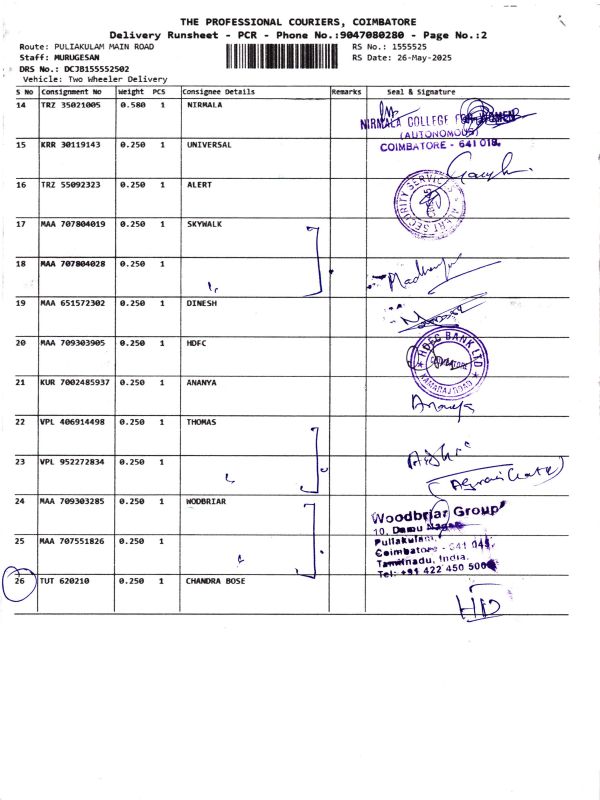 THE PROFESSIONAL COURIERS, COIMBATORE
Delivery Runsheet - PCR - Phone No.:9047080280 - Page No.:2
Route: PULIAKULAM MAIN ROAD RS No.: 1555525
Staff: MURUGESAN RS Date: 26-May-2025
DRS No.: DCJB155552502
Vehicle: Two Wheeler Delivery
S No Consignment No Weight PCS Consignee Details Remarks Seal & Signature
14 TRZ 35021005 0.580 1 NIRMALA
NIRMALA COLLEGE FOR WOMEN
(AUTONOMOUS)
COIMBATORE - 641 018.
15 KRR 30119143 0.250 1 UNIVERSAL
16 TRZ 55092323 0.250 1 ALERT
ALERT SECURITY SERVICES
17 MAA 707804019 0.250 1 SKYWALK
18 MAA 707804028 0.250 1
19 MAA 651572302 0.250 1 DINESH
20 MAA 709303905 0.250 1 HDFC
HDFC BANK LTD
21 KUR 7002485937 0.250 1 ANANYA
22 VPL 406914498 0.250 1 THOMAS
23 VPL 952272834 0.250 1
24 MAA 709303285 0.250 1 WODBRIAR
Woodbriar Group
10, Damu Nagar
Puliakulam,
25 MAA 707551826 0.250 1
Coimbatore - 641 045.
Tamilnadu, India.
Tel: +91 422 450
26 TUT 620210 0.250 1 CHANDRA BOSE